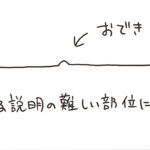 おでき
説明の難しい部位に